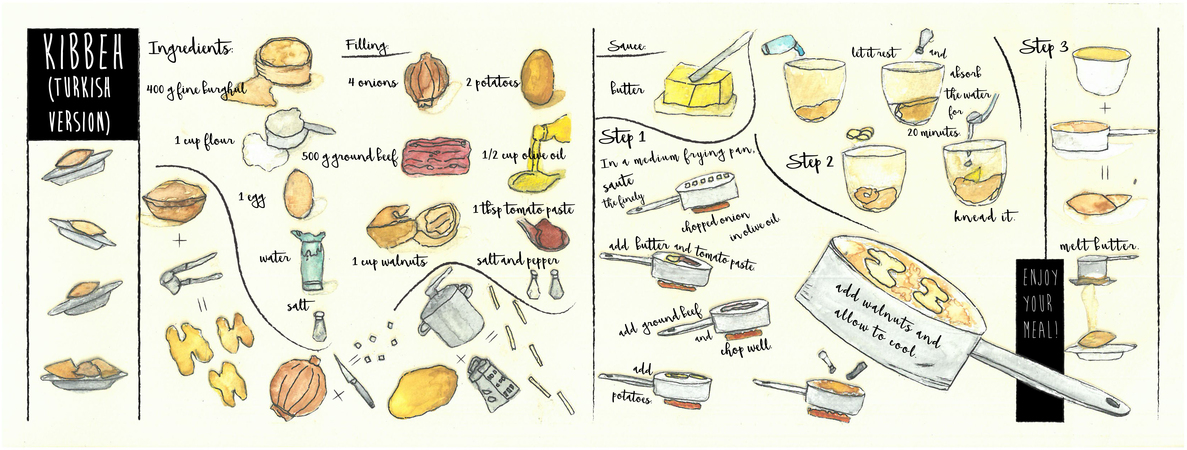 KIBBEH
(TURKISH
VERSION)
Ingredients:
400 g fine burghul
1 cup flour
1 egg
water
salt
Filling:
4 onions
2 potatoes
500 g ground beef
1/2 cup olive oil
1 cup walnuts
1 tbsp tomato paste
salt and pepper
Sauce:
butter
Step 1
In a medium frying pan,
saute
the finely
chopped onion
in olive oil
add butter and tomato paste
add ground beef
and
chop well.
add
potatoes.
add walnuts and
allow to cool.
Step 2
let it rest and
absorb
the water
for
20 minutes.
knead it.
Step 3
melt butter.
ENJOY
YOUR
MEAL!